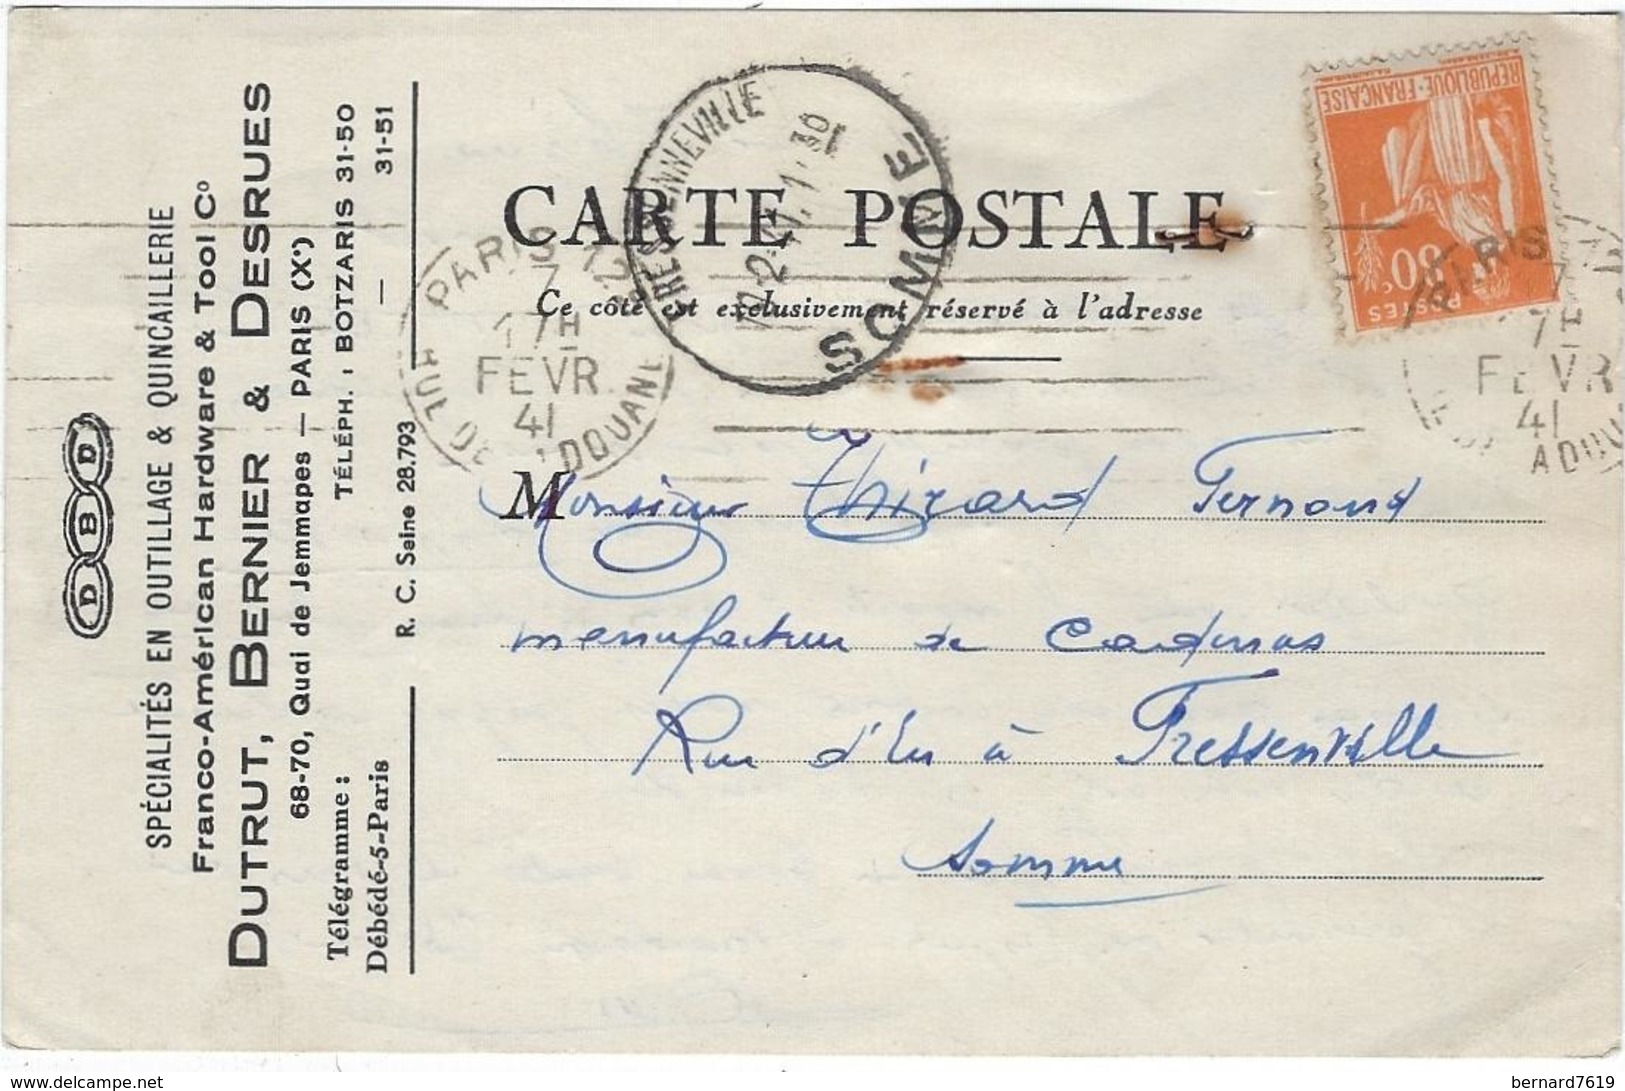 D B D
SPÉCIALITÉS EN OUTILLAGE & QUINCAILLERIE
Franco-Américan Hardware & Tool Cº
DUTRUT, BERNIER & DESRUES
68-70, Quai de Jemmapes — PARIS (Xᵉ)
Télégramme :
Débédé-5-Paris
TÉLÉPH. : BOTZARIS 31-50
— 31-51
R. C. Seine 28.793
CARTE POSTALE
Ce côté est exclusivement réservé à l'adresse
PARIS 12
17H
7
FEVR
41
SOMME
REPUBLIQUE·FRANÇAISE
80ᶜ
POSTES
PARIS
7H
FEVR
41
Monsieur Thirard Fernand
manufacture de Cadenas
Rue d'Eu à Fressenville
Somme
www.delcampe.net
bernard7619